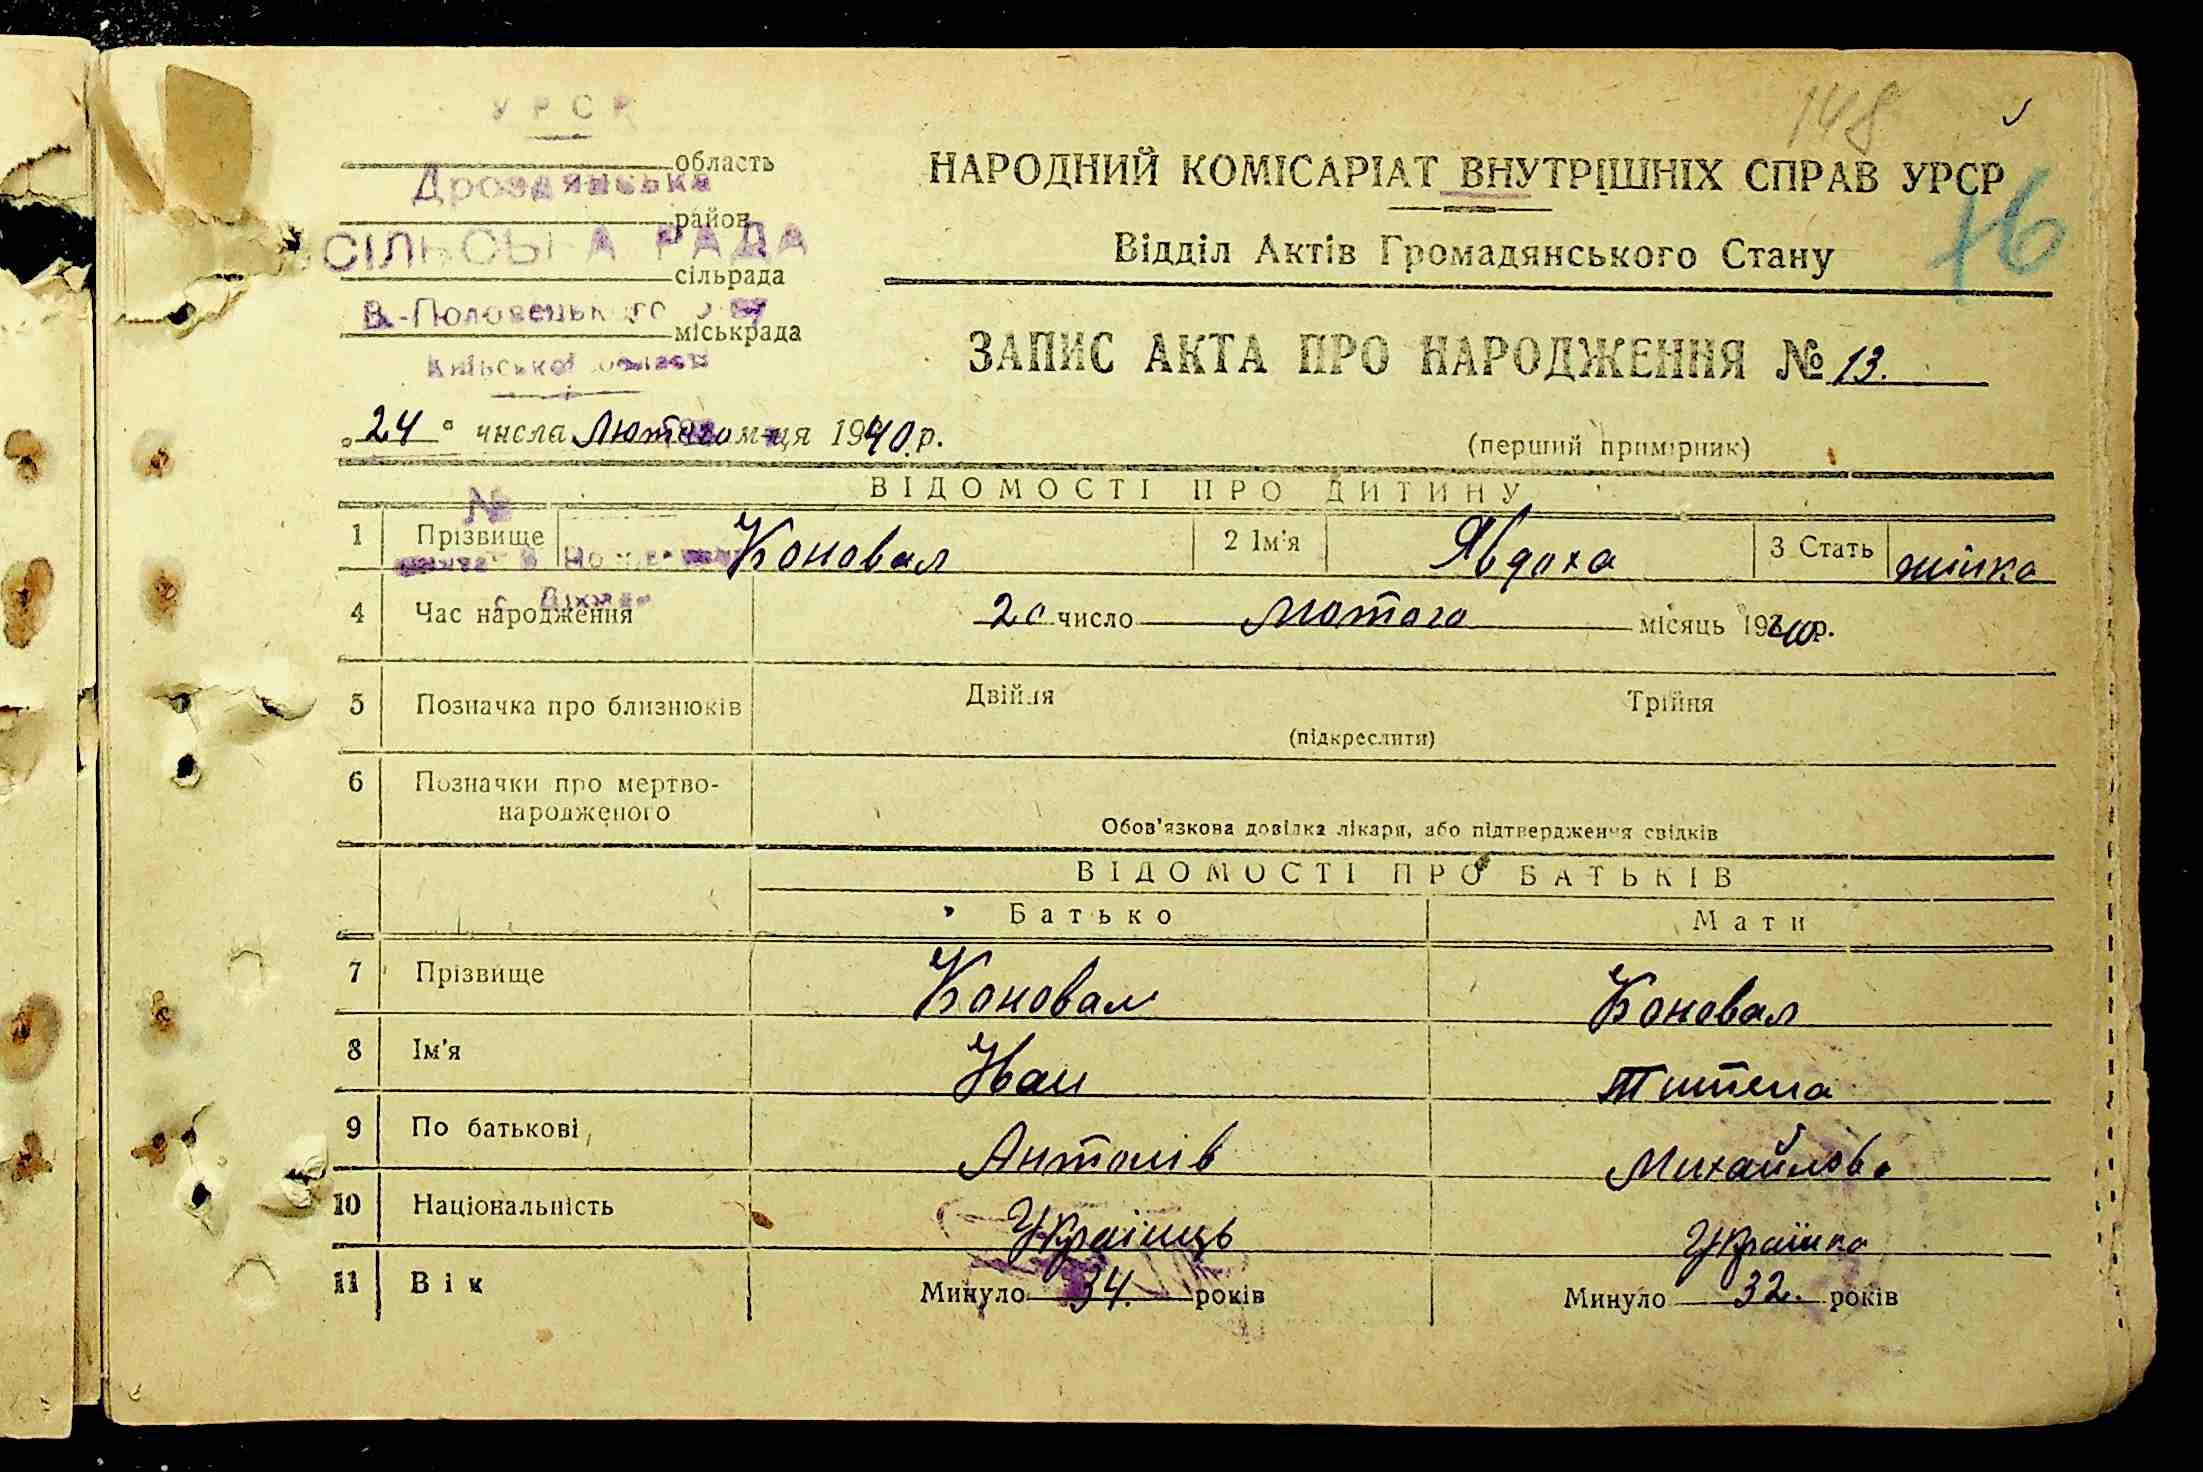 148
УРСР
область
НАРОДНИЙ КОМІСАРІАТ ВНУТРІШНІХ СПРАВ УРСР
Дроздянська
район
16
СІЛЬСЬКА РАДА
Відділ Актів Громадянського Стану
сільрада
В.-Половецького
міськрада
Київської області
ЗАПИС АКТА ПРО НАРОДЖЕННЯ № 13.
„24" числа Лютого м-ця 1940 р.
(перший примірник)
ВІДОМОСТІ ПРО ДИТИНУ
№
1 Прізвище Коновал 2 Ім'я Явдоха 3 Стать жінка
4 Час народження 20 число лютого місяць 1940 р.
5 Позначка про близнюків Двійня Трійня
(підкреслити)
6 Позначки про мертво-
народженого
Обов'язкова довідка лікаря, або підтвердження свідків
ВІДОМОСТІ ПРО БАТЬКІВ
Батько Мати
7 Прізвище Коновал Коновал
8 Ім'я Иван
9 По батькові Антонів Михайлова
10 Національність Українць Українка
11 Вік Минуло 34. років Минуло 32. років